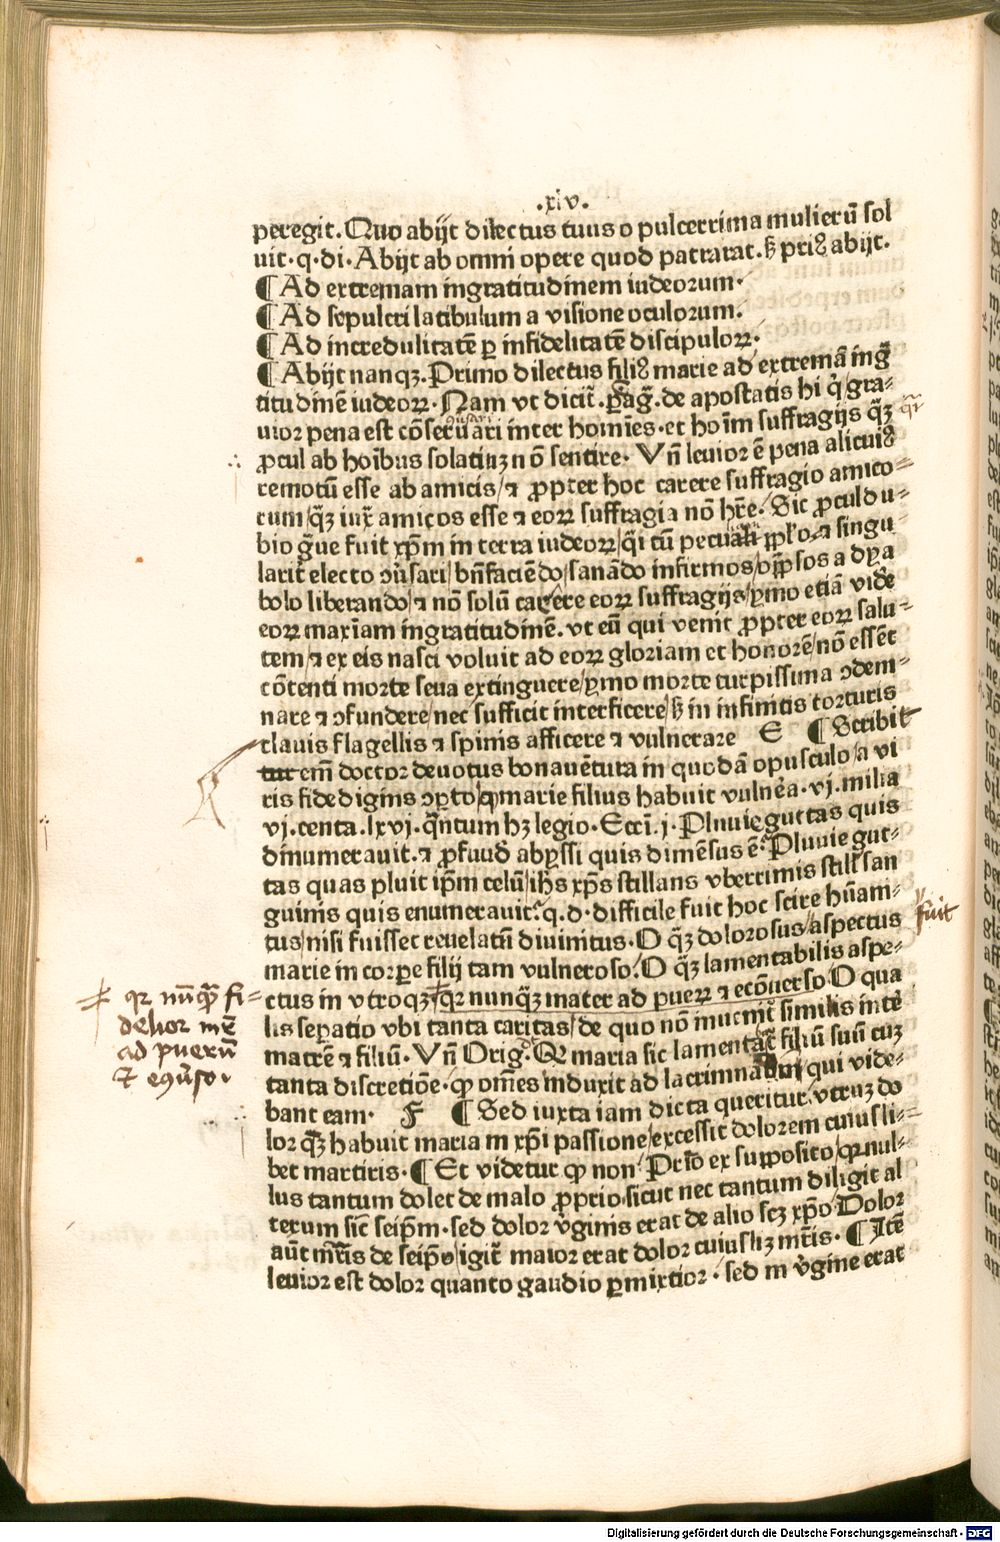 .xiv.
peregit. Quo abijt dilectus tuus o pulcerrima mulierū sol
uit. q. di. Abijt ab omni opere quod patrarat. ꝫ priꝰ abijt.
¶ Ad extremam ingratitudinem iudeorum.
¶ Ad sepulcri latibulum a visione oculorum.
¶ Ad incredulitatē ꝑ infidelitatē discipuloꝝ.
¶ Abijt nanqꝫ. Primo dilectus filiꝰ marie ad extremā ingͣ
titudinē iudeoꝝ. Nam vt dicit̄ . de apostatis hi q̇ gra-
uior pena est cōseruari inter homīes. et hoīm suffragijs qꝫ̄
ꝓcul ab hoībus solatiuꝫ nō sentire. Vn̄ leuior ē pena alicuiꝰ
remotū esse ab amicis/ ⁊ ꝓpter hoc carere suffragio amico-
rum/qꝫ̄ iux̄ amicos esse ⁊ eoꝝ suffragia nō hr̄e. Sic ꝓculdu-
bio gͣue fuit xp̄m in terra iudeoꝝ/ qͥ cū peculiari pp̄lo. ⁊ singu
larit̄ electo ↄu̇sari/ bn̄faciēdo/sanādo infirmos/opp̄sos a dya
bolo liberando/ ⁊ nō solū carere eoꝝ suffragijs/ ymo etiā vidē
eoꝝ maxīam ingratitudinē. vt eū qui venit ꝓpter eoꝝ salu-
tem/ ⁊ ex eis nasci voluit ad eoꝝ gloriam et honorē/ nō essēt
cōtenti morte seua extinguere/ ymo morte turpissima ↄdem-
nare ⁊ ↄfundere/ nec sufficit interficere/ ꝫ in infinitis torturis
clauis flagellis ⁊ spinis afficere ⁊ vulnerare E ¶ Scribit
tur em̄ doctor deuotus bonauētura in quodā opusculo/ a vi
ris fide dignis ↄꝑto/ ꝙ marie filius habuit vulnēa. vj. milia
vj. centa. lxvj. qͣntum hꝫ legio. Eccī. j. Pluuie guttas quis
dinumerauit. ⁊ ꝓfundū abyssi quis dimēsus ē. Pluuie gut-
tas quas pluit ip̄m celū/ ih̄s xp̄s stillans vberrimis still san
guinis quis enumerauit. q. d. difficile fuit hoc scire hūam-
tus/ nisi fuisset reuelatū diuinitus. O qꝫ̄ dolorosus/ aspectus
marie in corꝑe filij tam vulneroso. O qꝫ̄ lamentabilis aspe-
ctus in vtroqꝫ qꝛ nunqꝫ̄ mater ad pueꝝ ⁊ ecōuerso O qua
lis seꝑatio vbi tanta caritas/ de quo nō similis intē
matrē ⁊ filiū. Vn̄ Orig. Qꝛ maria sic lamentat̄ filiū suū cuꝫ
tanta discretiōe. ꝙ om̄es induxit ad lacrimnā qui vide-
bant eam. F ¶ Sed iuxta iam dicta queritur. vtruꝫ do
lor qꝫ̄ habuit maria in xp̄i passione/ excessit dolorem cuiusli-
bet martiris. ¶ Et videtur ꝙ non. Prīo ex supposito/ ꝙ nul-
lus tantum dolet de malo ꝓprio sicut nec tantum diligit al
terum sic̄ seip̄m. sed dolor v̇ginis erat de alio scꝫ xp̄o Dolor
aūt mr̄tis de seip̄o/ igit̄ maior erat dolor cuiusliꝫ mr̄tis. ¶ Itē
leuior est dolor quanto gaudio ꝑmixtior. sed in v̇gine erat
fuit
qꝛ nūqͣꝫ fi-
delior inē
ad puerū
⁊ eↄu̇so.
Digitalisierung gefördert durch die Deutsche Forschungsgemeinschaft - DFG